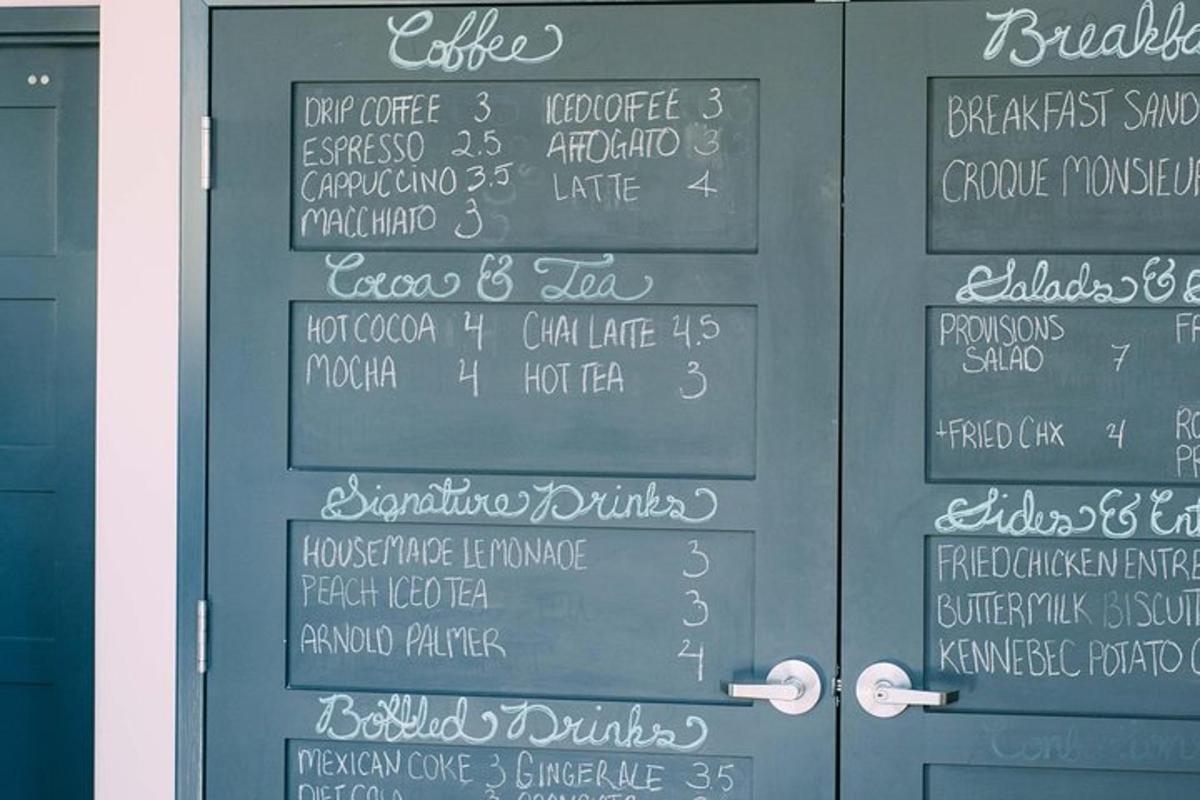 Coffee
DRIP COFFEE 3 ICED COFFEE 3
ESPRESSO 2.5 AFFOGATO 3
CAPPUCCINO 3.5 LATTE 4
MACCHIATO 3
Cocoa & Tea
HOT COCOA 4 CHAI LATTE 4.5
MOCHA 4 HOT TEA 3
Signature Drinks
HOUSEMADE LEMONADE 3
PEACH ICED TEA 3
ARNOLD PALMER 4
Bottled Drinks
MEXICAN COKE 3 GINGER ALE 3.5
DIET COLA 3
Breakfa
BREAKFAST SAND
CROQUE MONSIEUR
Salads &
PROVISIONS
SALAD 7
+FRIED CHX 4
RO
PE
Sides & Ent
FRIED CHICKEN ENTRE
BUTTERMILK BISCUIT
KENNEBEC POTATO C